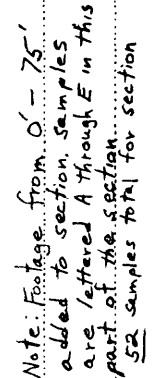 Note: Footage from 0' - 75'
added to section. samples
are lettered A through E in this
part of the section.
52 samples total for section